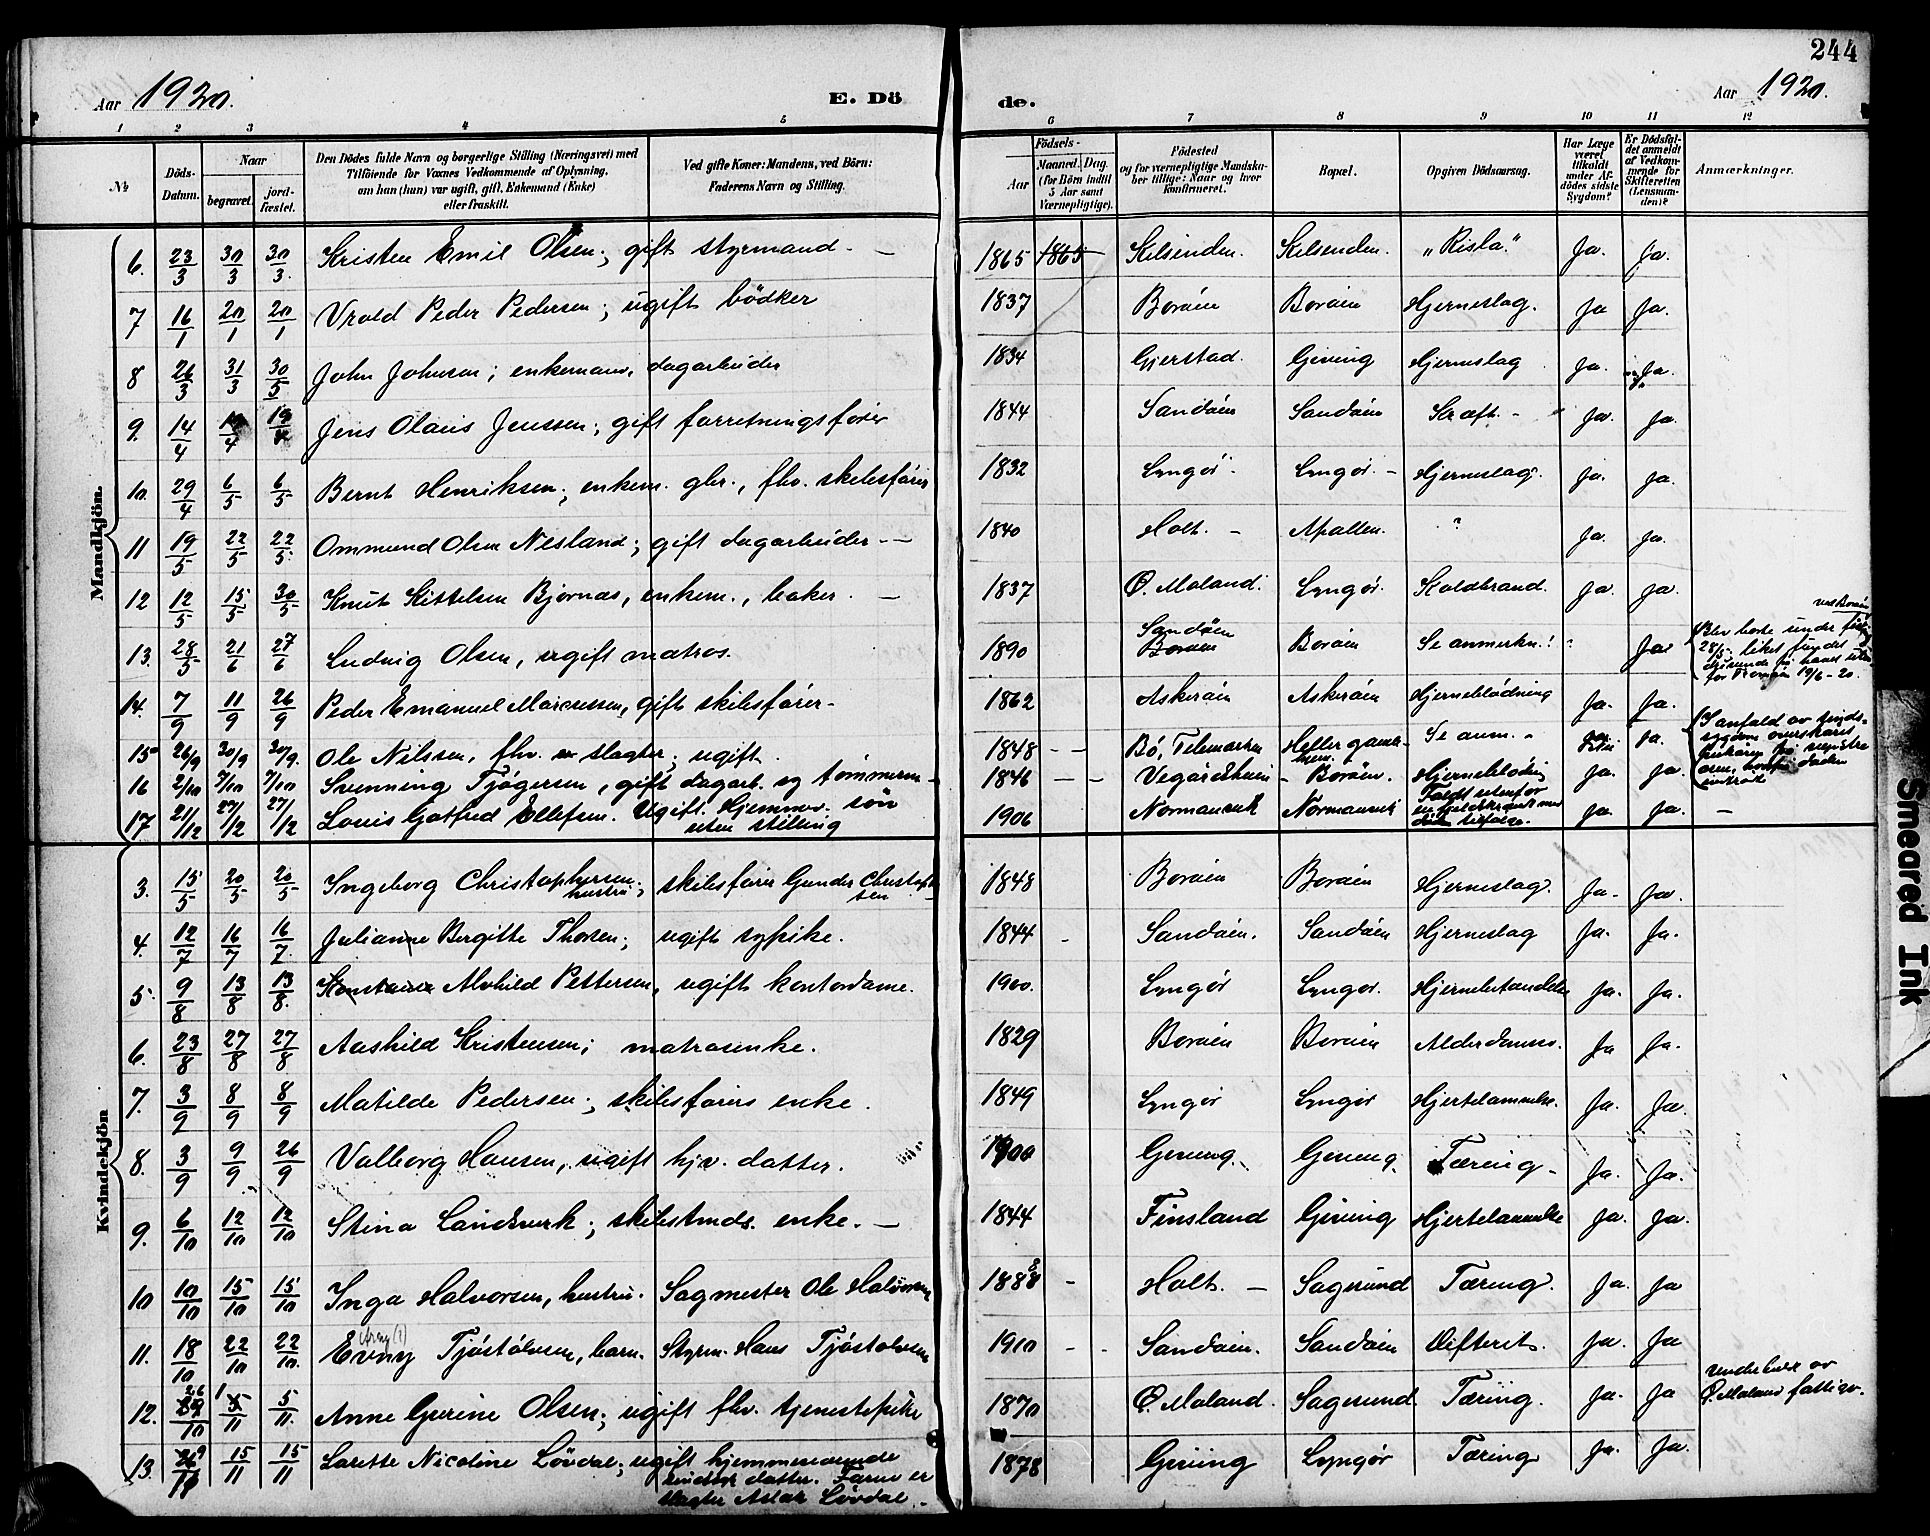 244
Aar 1920. E. Dö de. Aar 1920.
1 2 3 4 5 6 7 8 9 10 11 12
№ Döds-Datum. Naar begravet. jordfæstet. Den Dödes fulde Navn og borgerlige Stilling (Næringsvei) med Tilföiende for Voxnes Vedkommende af Oplysning, om han (hun) var ugift, gift, Enkemand (Enke) eller fraskilt. Ved gifte Koner: Mandens, ved Börn: Faderens Navn og Stilling. Födsels- Aar Maaned. Dag. (for Börn indtil 5 Aar samt Værnepligtige). Födested og for værnepligtige Mandskaber tillige: Naar og hvor konfirmeret. Bopæl. Opgiven Dödsaarsag. Har Læge været tilkaldt under Afdödes sidste Sygdom? Er Dödsfaldet anmeldt af Vedkommende for Skifteretten (Lensmanden)? Anmærkninger.
Mandkjön.
6. 23/3 30/3 30/3. Kristen Emil Olsen; gift styrmand - 1865 1865 Kilsenden. Kilsenden. "Risla." Ja. Ja.
7 16/1 20/1 20/1 Vrold Peder Pedersen; ugift bödker 1837 Boröen Boröen Hjerneslag. Ja Ja.
8 26/3 31/3 30/5 John Johnsen; enkemann, dagarbeider 1834 Gjerstad. Gieving Hjerneslag Ja. Ja.
9. 14/4 19/4 19/4 Jens Olaus Jenssen; gift forretningsfører 1844 Sandöen Sandöen Kræft. - Ja. Ja.
10. 29/4 6/5 6/5 Bernt Henriksen; enkem. gbr., fhv. skibsfører 1832 Lyngör. Lyngör. - Hjerneslag. Ja. Ja.
11 19/5 22/5 22/5. Ommund Olsen Nesland; gift dagarbeider -- 1840 Holt. - Apalten. ? Ja. Ja.
12 12/5 15/5 30/5 Knut Kittelsen Bjørnaas, enkem., baker. - 1837 Ö. Moland. Lyngör. Koldbrand. Ja. Ja.
13. 28/5 21/6 27/6 Ludvig Olsen, ugift matros. 1890 Sandöen Boröen Boröen Se anmerkn.! " Ja. ved Boröen Blev borte under 28/5. liket fundet 19/6-20.
14. 7/9 11/9 26/9 Peder Emanuel Marcussen, gift skibsfører. 1862 Askeröen Askeröen Hjerneblödning Ja. Ja.
15 26/9 30/9 30/9. Ole Nilssen, fhv. slagter, ugift. 1848 -- Bö, Telemarken Heller gamlehjem. Se anm. - Ja. I anfald av sindssygdom overskaaret
16 2/10 7/10 7/10 Svenning Tjøgersen, gift dagarb. og tømmerm - 1846 -- Vegårdsheien - Boröen. Hjerneblödning Ja. Ja.
17. 21/12 27/12 27/12 Louis Gotfred Ellefsen. Ugift. Hjemmev. søn uten stilling 1906 Normansvik Normansvik Ja. Ja. -
Kvindekjön
3. 15/5 20/5 20/5 Ingeborg Christophersen hustru; skibsfører Gunder Christophersen - 1848 Boröen Boröen Hjerneslag. Ja. Ja.
4. 12/7 16/7 16/7. Julianne Bergitte Thorsen; ugift sypike. 1844 - Sandöen. Sandöen Hjerneslag Ja. Ja.
5. 9/8 13/8 13/8. Konstance Alvhild Pettersen, ugift kontordame. 1900. Lyngør Lyngor. Hjernebetændelse Ja. Ja.
6. 23/8 27/8 27/8 Aashild Kristensen; matrosenke. 1829 Boröen Boröen Alderdomssv. Ja Ja.
7. 3/9 8/9 8/9 Matilde Pedersen; skibsførers enke. 1849 Lyngör Lyngör Hjertelammelse. Ja. Ja.
8. 3/9 9/9 26/9 Valborg Hansen, ugift hjv. datter. 1900 Gieving. Gieving. Tæring - Ja. Ja.
9. 6/10 12/10 12/10 Stina Landsverk; skibstmds. enke. - 1844 Finsland Gieving Hjertelammelse Ja. Ja.
10 10/10 15/10 15/10 Inga Halvorsen, hustru. Sagmester Ole Halvorsen 1888 8 - Holt. - Sagesund Tæring. Ja. Ja
11. 18/10 22/10 22/10. Evny Tjøstolvsen, barn. Styrm. Hans Tjøstolvsen 1910 - - Sandöen. Sandöen Difterit. Ja. Ja
12. 26/10 1/11 5/11. Anne Gurine Olsen; ugift fhv. tjenestepike 1870 Ö. Moland. Sagesund. Tæring. Ja. Ja Underhold av Ö. Moland fattigv.
13. 9/11 15/11 15/11 Larette Nicoline Lövdal; ugift hjemmeværende datter. Faren er slagter Aslak Lövdal. - 1878 Gieving Lyngör Tæring Ja. Ja.
Smeared Ink